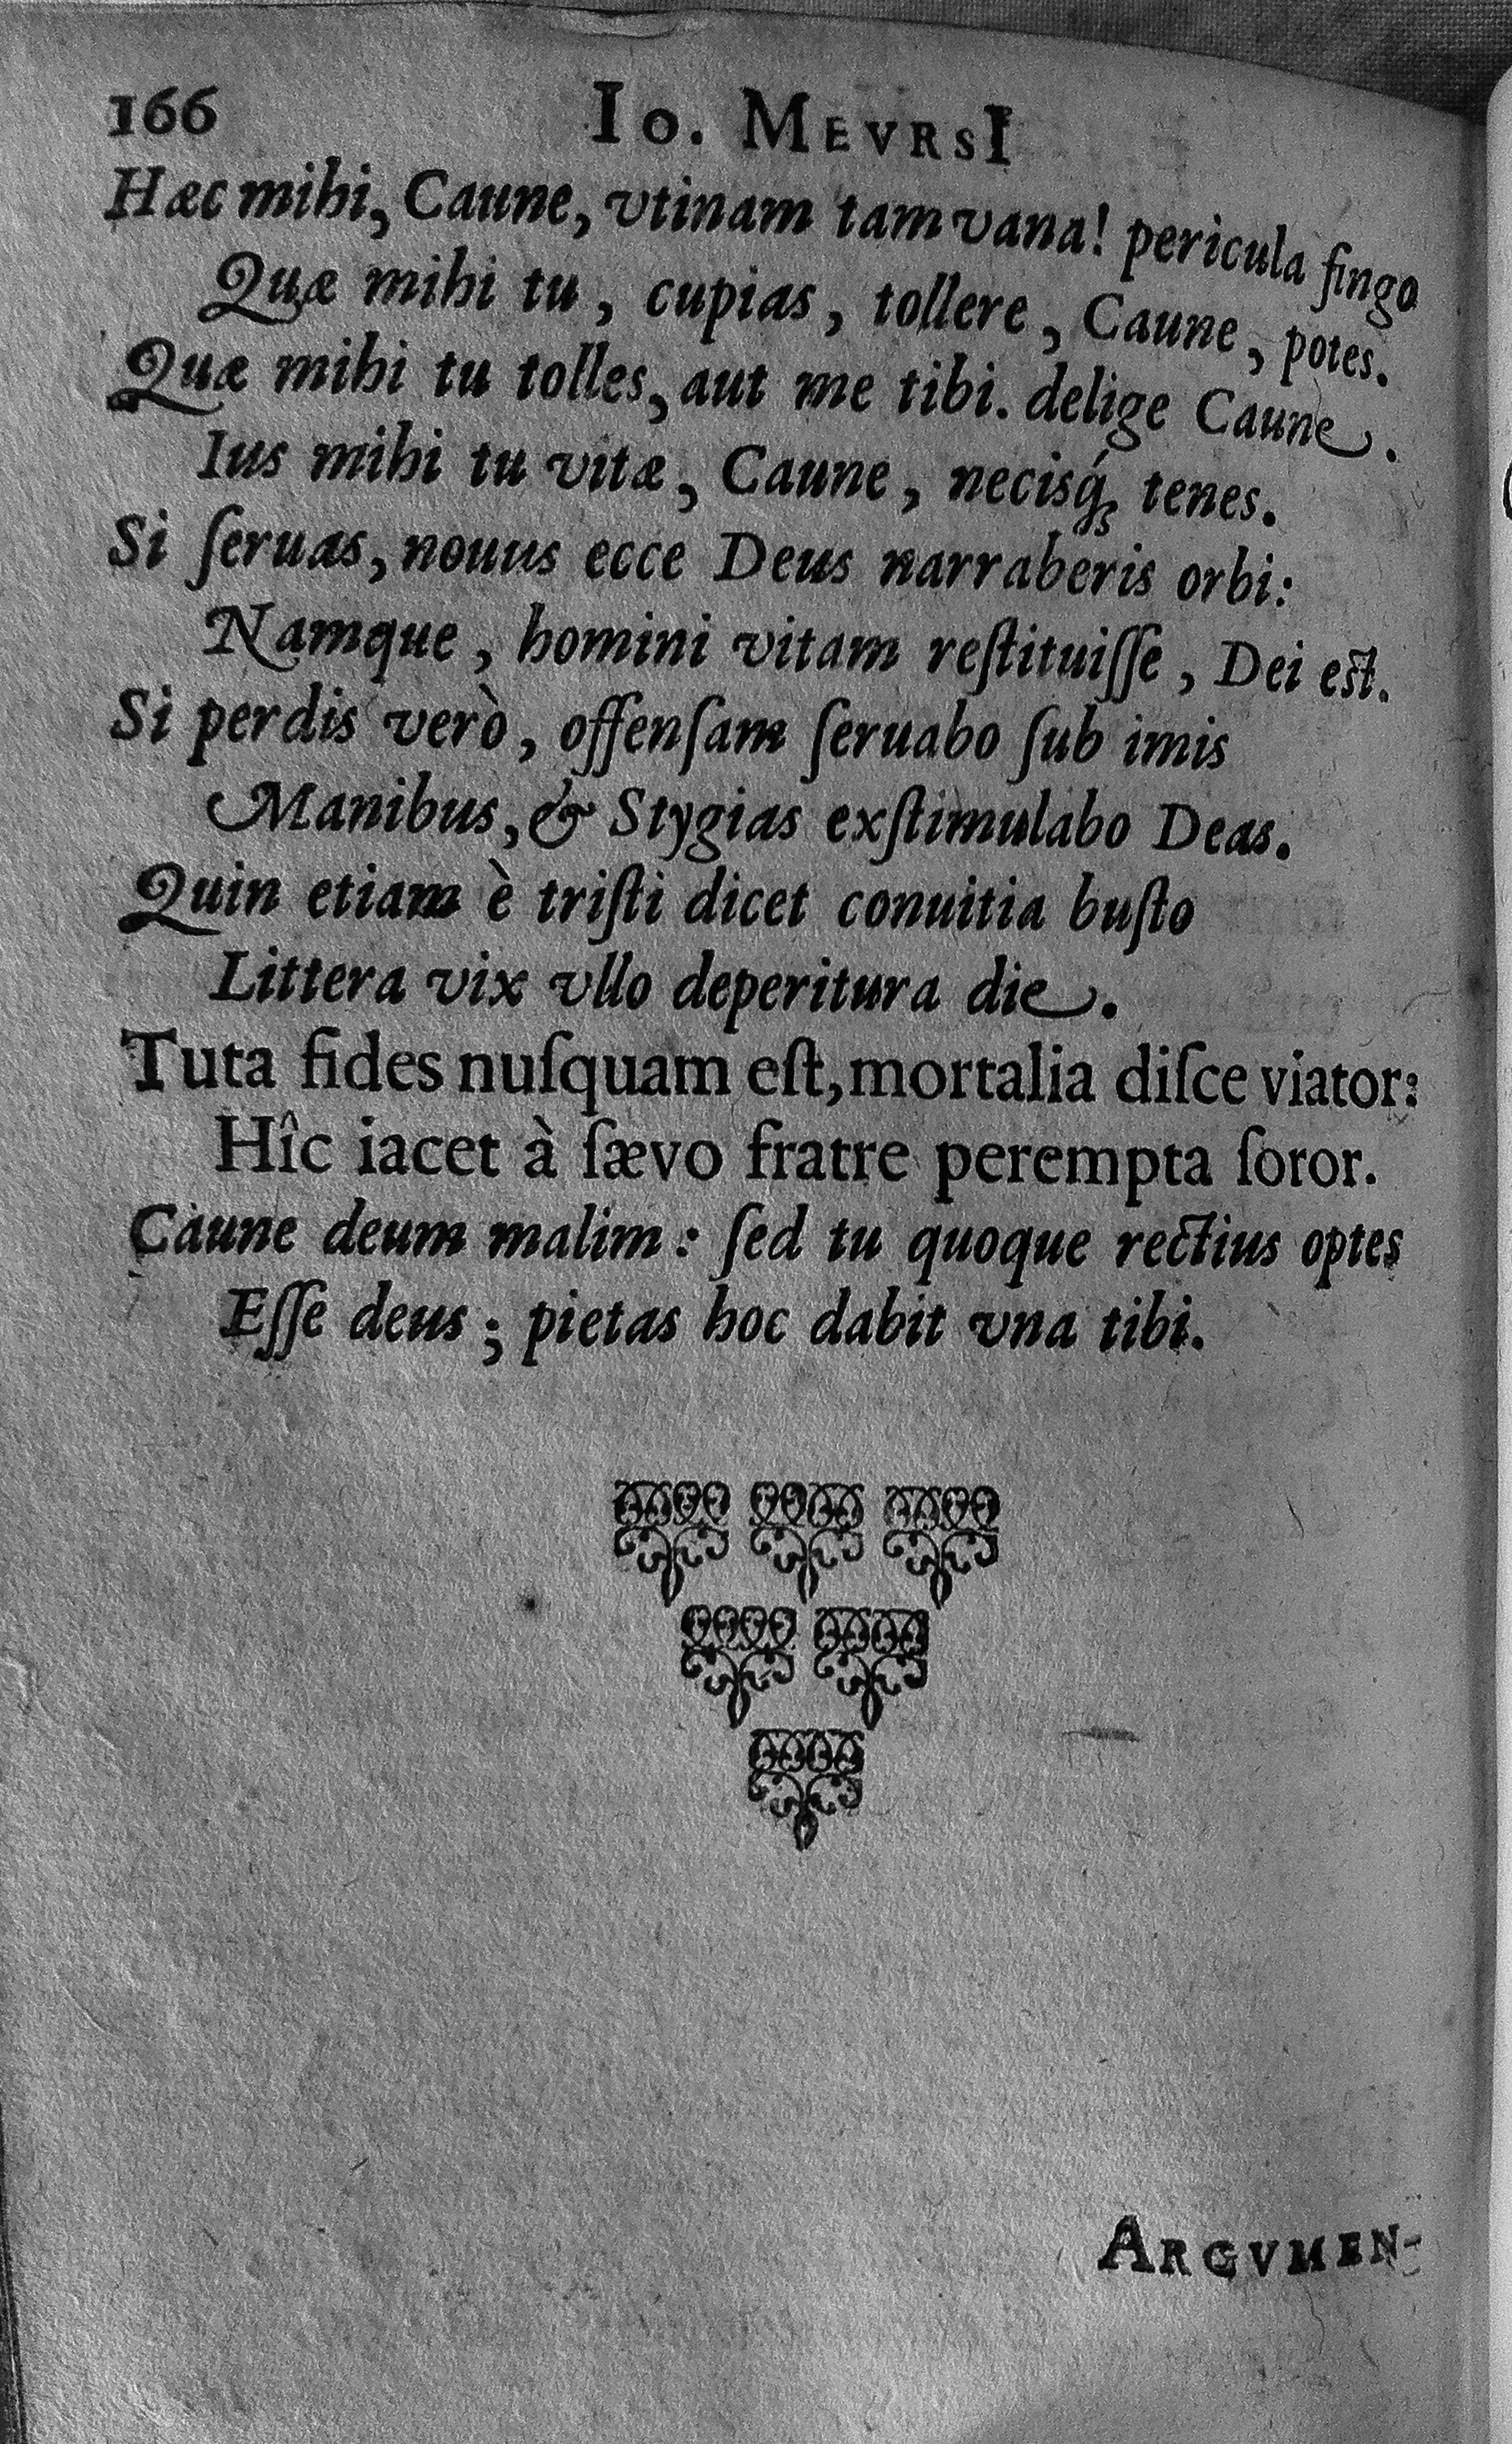 166 Io. MEVRSI
Hæc mihi, Caune, vtinam tam vana! pericula fingo
Quæ mihi tu, cupias, tollere, Caune, potes.
Quæ mihi tu tolles, aut me tibi. delige Caune.
Ius mihi tu vitæ, Caune, necisq́; tenes.
Si ſeruas, nouus ecce Deus narraberis orbi:
Namque, homini vitam reſtituiſſe, Dei eſt.
Si perdis verò, offenſam ſeruabo ſub imis
Manibus, & Stygias exſtimulabo Deas.
Quin etiam è triſti dicet conuitia buſto
Littera vix vllo deperitura die.
Tuta fides nuſquam eſt, mortalia diſce viator:
Hîc iacet à ſævo fratre perempta ſoror.
Caune deum malim: ſed tu quoque rectius optes
Eſſe deus; pietas hoc dabit vna tibi.
ARGVMEN-